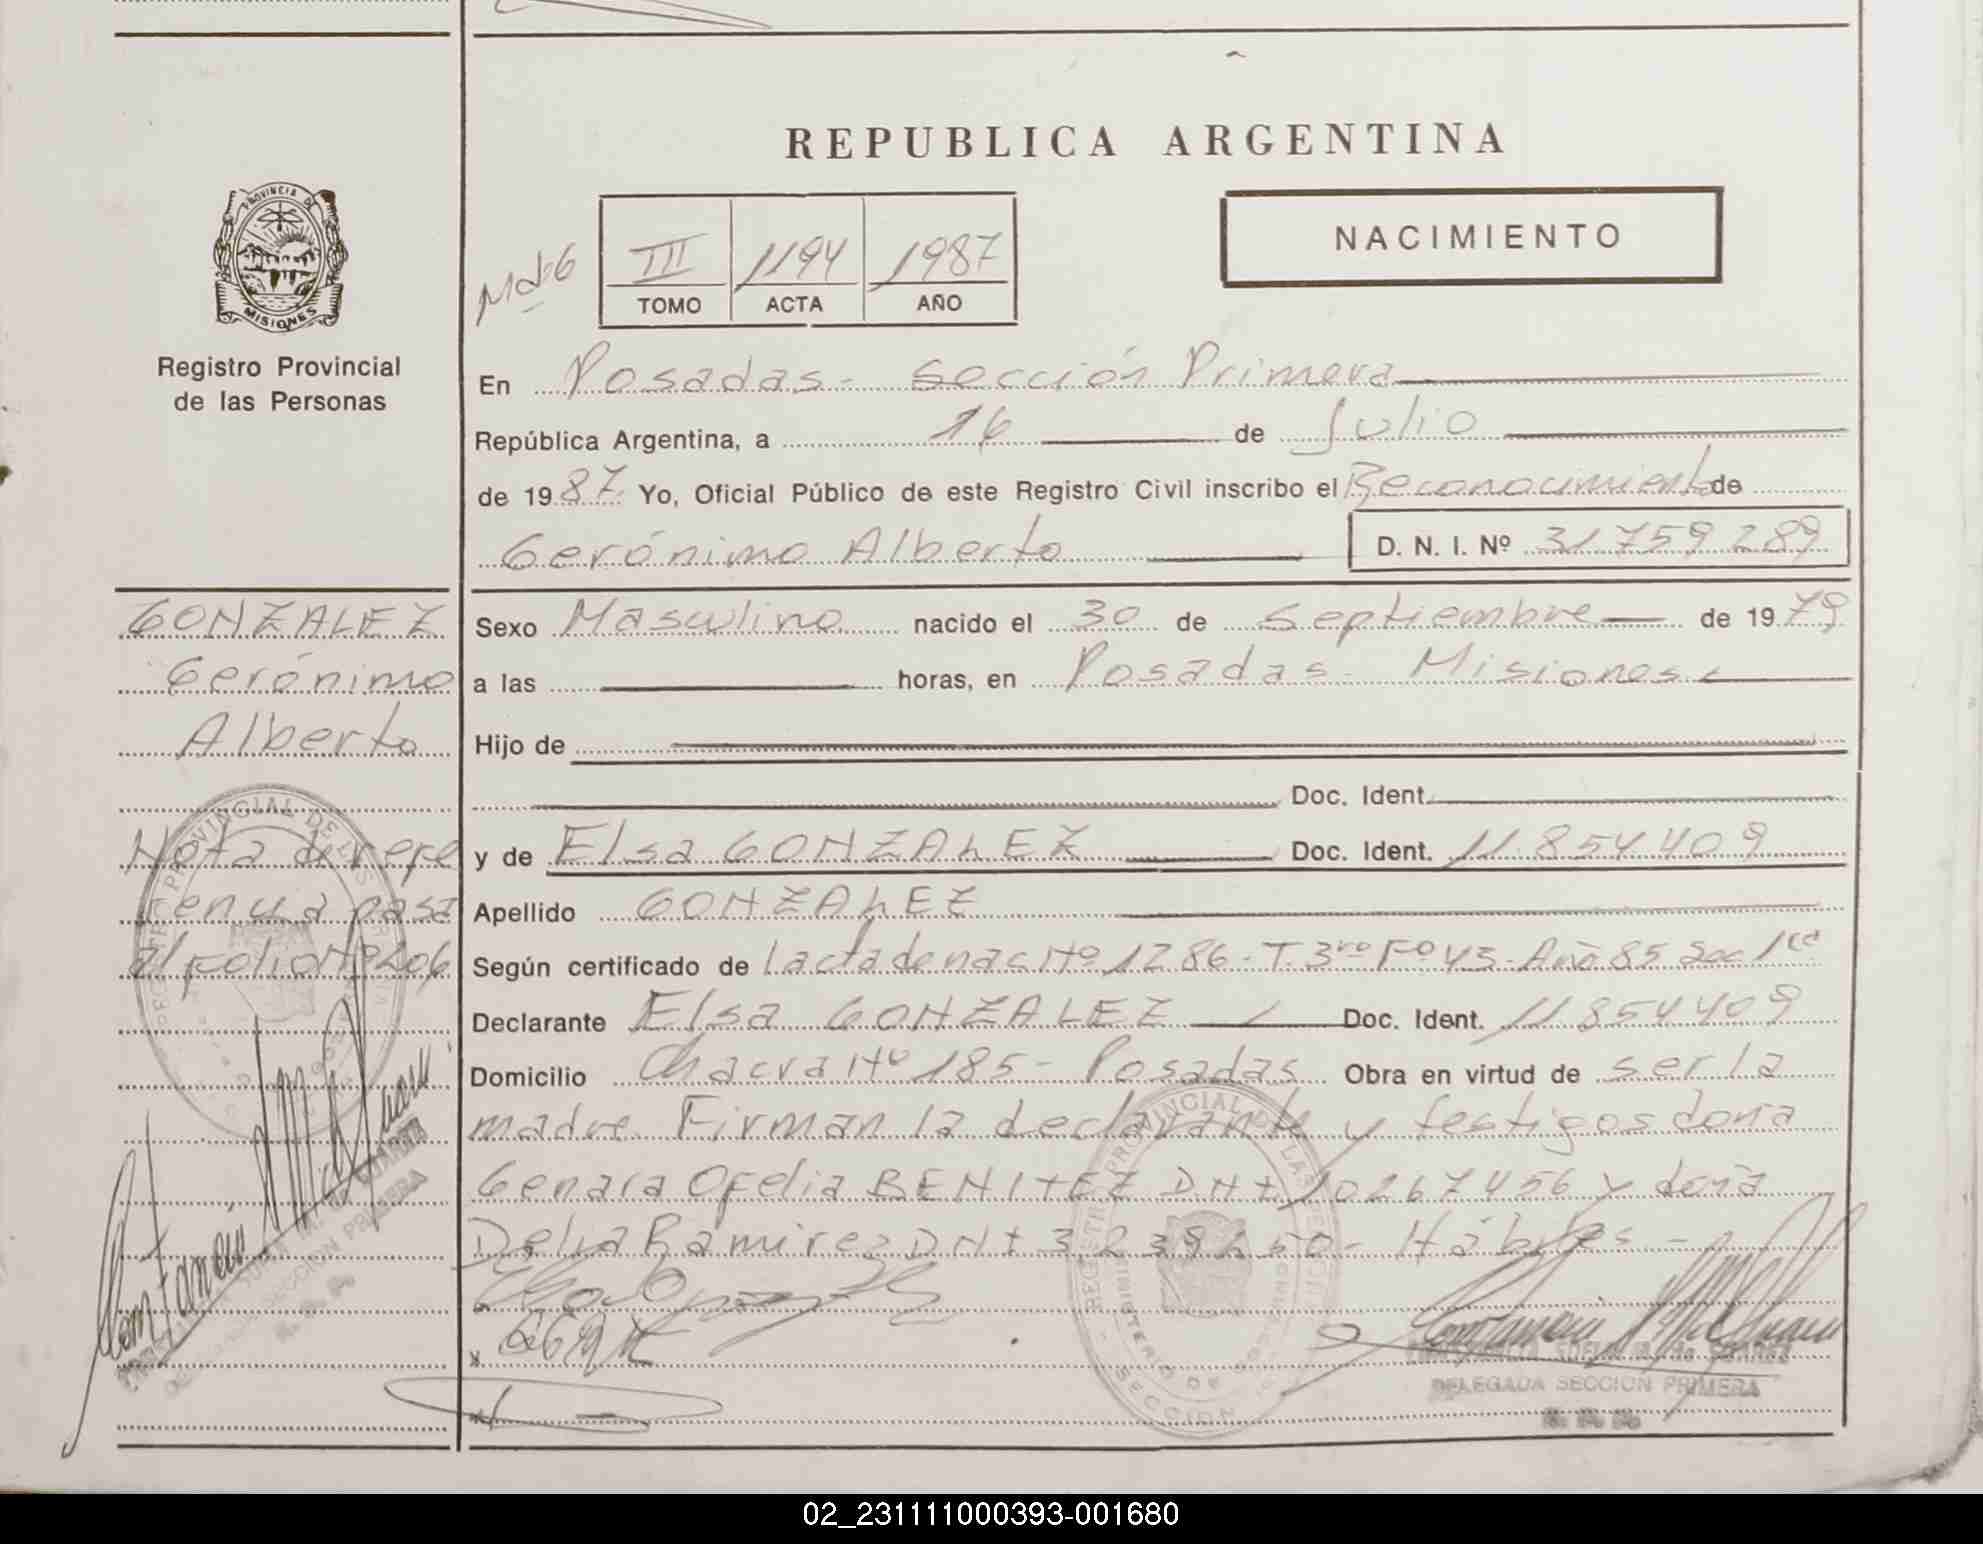 REPUBLICA ARGENTINA
NACIMIENTO
PROVINCIA DE MISIONES
Registro Provincial
de las Personas
III 1194 1987
TOMO ACTA AÑO
En Posadas - Sección Primera
República Argentina, a 16 de Julio
de 1987. Yo, Oficial Público de este Registro Civil inscribo el Reconocimiento de
Gerónimo Alberto D. N. I. Nº 31 759 289
GONZALEZ
Gerónimo
Alberto
Nota de refe
rencia pasa
al folio Nº 206
Sexo Masculino nacido el 30 de Septiembre de 1979
a las horas, en Posadas - Misiones
Hijo de
Doc. Ident.
y de Elsa GONZALEZ Doc. Ident. 11.854.409
Apellido GONZALEZ
Según certificado de l acta de nac Nº 1286 - T. 3ro Fº 43 - Año 85 Sec 1ra
Declarante Elsa GONZALEZ Doc. Ident. 11 854 409
Domicilio Chacra Nº 185 - Posadas Obra en virtud de ser la
madre. Firman la declarante y testigos doña
Genara Ofelia BENITEZ DNI 10267456 y doña
Delia Ramirez DNI 3 239 250 - Hábiles -
REGISTRO PROVINCIAL DE LAS PERSONAS
MINISTERIO DE GOBIERNO
SECCION
DELEGADA SECCION PRIMERA
02_231111000393-001680